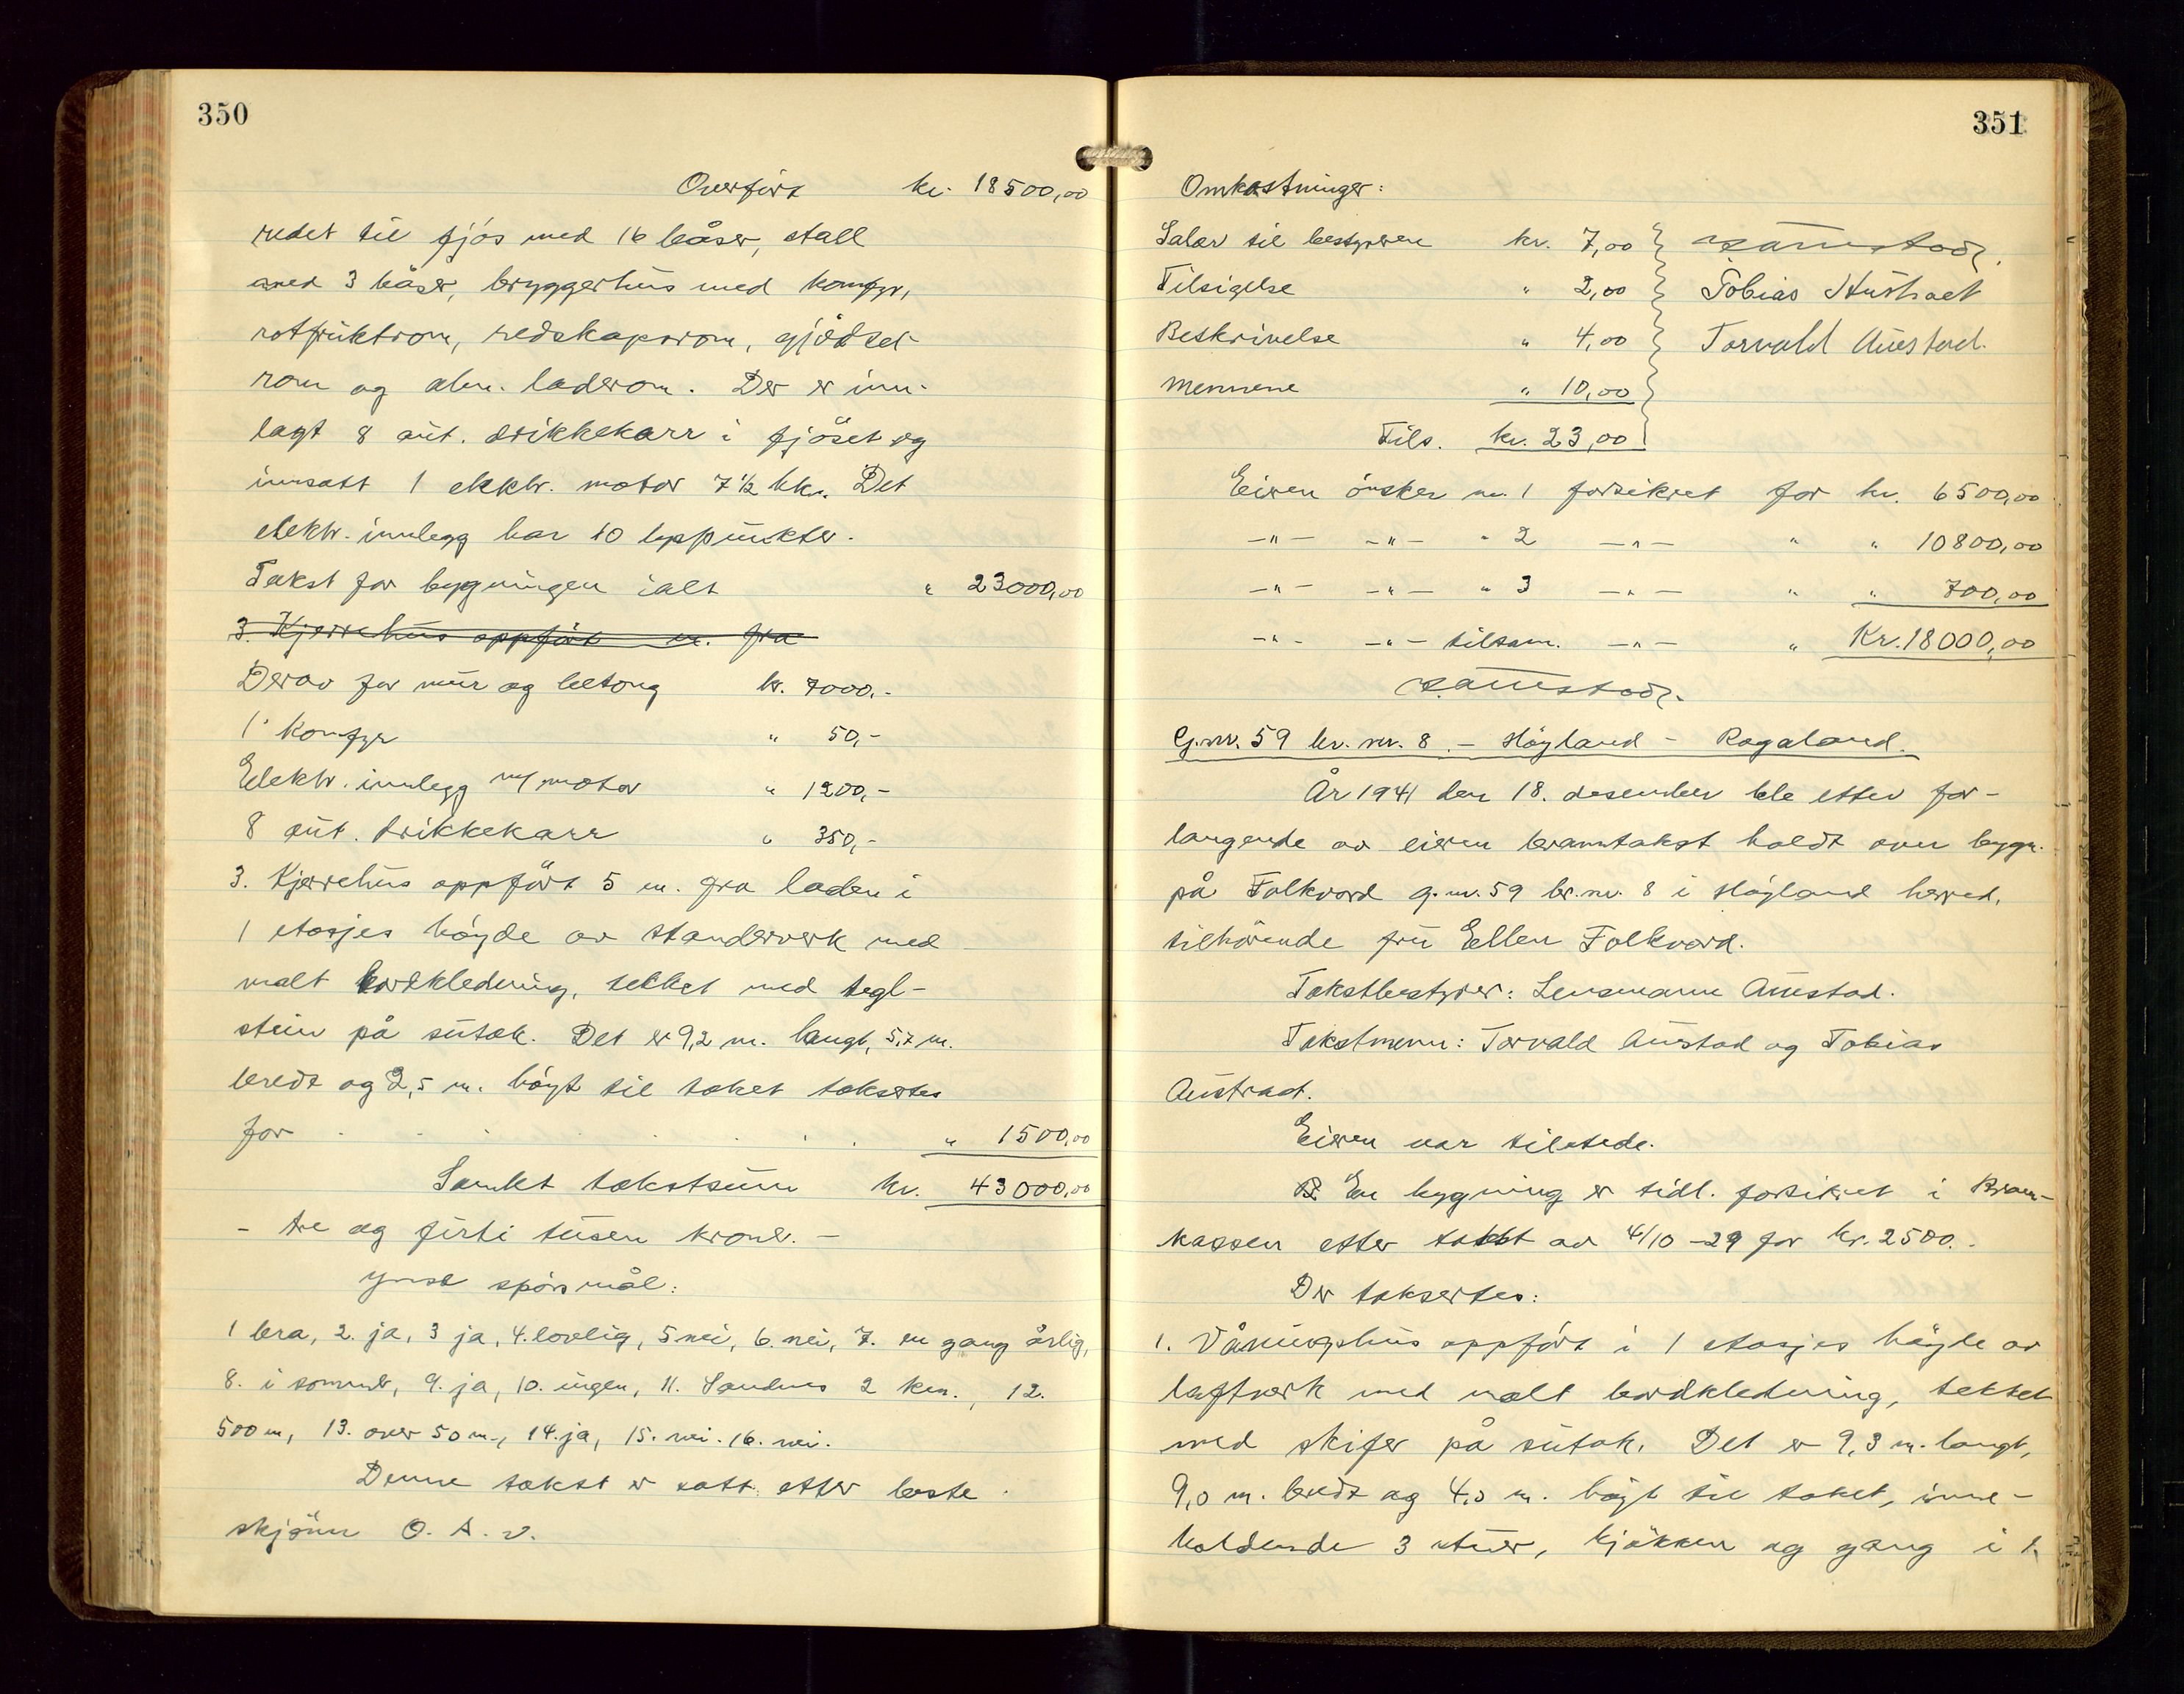 350
Overført kr. 18500,00
redet til fjös med 16 båser, stall
med 3 båser, bryggerhus med komfyr,
rotfruktrom, redskapsrom, gjödsel-
rom og alm. laderom. Der er inn-
lagt 8 aut. drikkekarr i fjöset og
innsatt 1 elektr. motor 7 1/2 hk. Det
elektr. innlegg har 10 lyspunkter.
Takst for bygningen ialt " 23000,00
3. Kjerrehus oppfört m. fra
Derav for mur og betong kr. 7000.-
1 komfyr " 50,-
Elektr. innlegg m/motor " 1200,-
8 aut. drikkekarr " 350,-
3. Kjerrehus oppfört 5 m. fra laden i
1 etasjes höyde av standerverk med
malt bordkledning, tekket med tegl-
stein på sutak. Det er 9,2 m. langt, 5,7 m.
bredt og 2,5 m. höyt til taket takseres
for . . . . . . . " 1500,00
Samlet takstsum kr. 43000,00
- tre og förti tusen kroner. -
Ymse spörsmål:
1 bra, 2. ja, 3 ja, 4. lovlig, 5 nei, 6. nei, 7. en gang årlig,
8. i sommer, 9. ja, 10. ingen, 11. Sandnes 2 km., 12.
500 m, 13. over 50 m., 14. ja, 15. nei. 16. nei.
Denne takst er satt etter beste
skjönn O. A. v.
351
Omkostninger:
Salær til bestyreren kr. 7,00
Tilsigelse " 2,00 Tobias Austraat
Beskrivelse " 4,00 Torvald Austad.
Mennene " 10,00
Tils. kr. 23,00
Eieren önsker nr. 1 forsikret for kr. 6500,00
-"- -"- " 2 -"- " " 10800,00
-"- -"- " 3 -"- " " 700,00
-"- -"- tilsam. -"- " Kr. 18000,00
G.nr. 59 br. nr. 8. - Höyland - Rogaland.
År 1941 den 18. desember ble etter for-
langende av eieren branntakst holdt over bygn.
på Folkvord g. nr. 59 br. nr. 8 i Höyland herred,
tilhörende fru Ellen Folkvord.
Takstbestyrer: Lensmann Aurstad.
Takstmenn: Torvald Austad og Tobias
Austraat.
Eieren var tilstede.
En bygning er tidl. forsikret i Brann-
kassen etter takst av 4/10 -29 for kr. 2500.-
Der takseres:
1. Våningshus oppfört i 1 etasjes höyde av
laftverk med malt bordkledning, tekket
med skifer på sutak. Det er 9,3 m. langt,
9,0 m. bredt og 4,0 m. höyt til taket, inne-
holdende 3 stuer, kjökken og gang i 1.